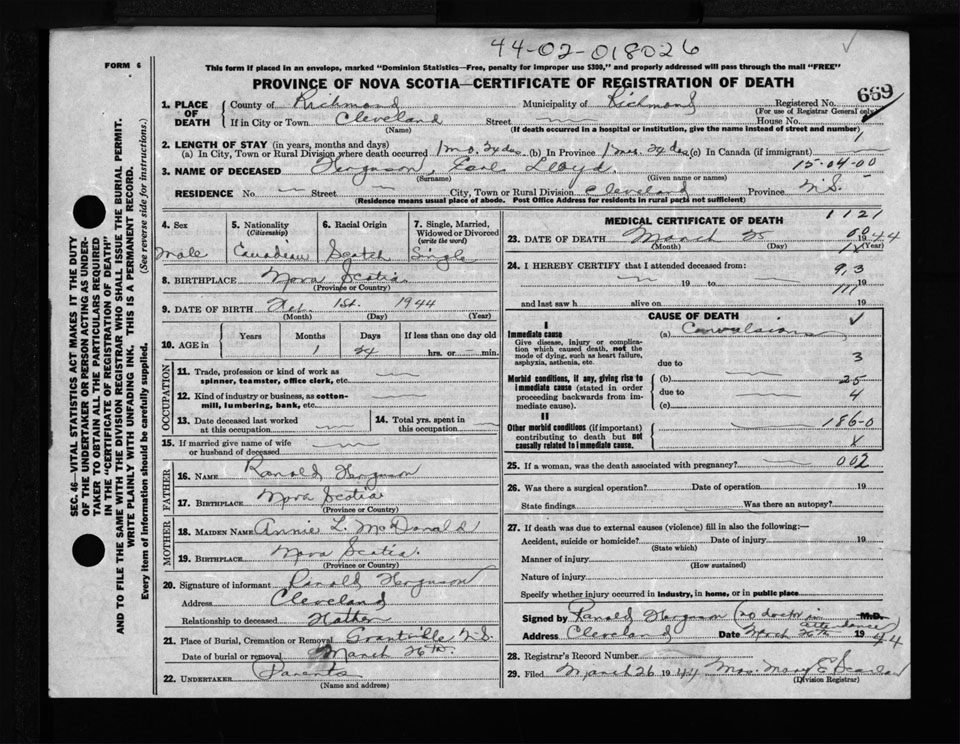 44-02-018026
FORM 6
This form if placed in an envelope, marked "Dominion Statistics—Free, penalty for improper use $300," and properly addressed will pass through the mail "FREE"
PROVINCE OF NOVA SCOTIA—CERTIFICATE OF REGISTRATION OF DEATH
669
1. PLACE OF DEATH County of Richmond Municipality of Richmond Registered No.
(For use of Registrar General only)
If in City or Town Cleveland Street House No.
(Name) (If death occurred in a hospital or institution, give the name instead of street and number)
2. LENGTH OF STAY (in years, months and days)
(a) In City, Town or Rural Division where death occurred 1 mo. 24 ds. (b) In Province 1 mo. 24 ds (c) In Canada (if immigrant)
3. NAME OF DECEASED Ferguson, Earl Lloyd. 15-04-00
(Surname) (Given name or names)
RESIDENCE No Street City, Town or Rural Division Cleveland Province N.S.
(Residence means usual place of abode. Post Office Address for residents in rural parts not sufficient)
4. Sex 5. Nationality (Citizenship) 6. Racial Origin 7. Single, Married, Widowed or Divorced (write the word)
Male Canadian Scotch Single
8. BIRTHPLACE Nova Scotia
(Province or Country)
9. DATE OF BIRTH Feb. 1st. 1944
(Month) (Day) (Year)
10. AGE in Years Months Days If less than one day old
1 24 hrs. or min.
OCCUPATION
11. Trade, profession or kind of work as spinner, teamster, office clerk, etc.
12. Kind of industry or business, as cotton-mill, lumbering, bank, etc.
13. Date deceased last worked at this occupation
14. Total yrs. spent in this occupation
15. If married give name of wife or husband of deceased
FATHER
16. NAME Ranald Ferguson
17. BIRTHPLACE Nova Scotia
(Province or Country)
MOTHER
18. MAIDEN NAME Annie L. McDonald
19. BIRTHPLACE Nova Scotia.
(Province or Country)
20. Signature of informant Ranald Ferguson
Address Cleveland
Relationship to deceased Father
21. Place of Burial, Cremation or Removal Grantville N.S.
Date of burial or removal March 26th.
22. UNDERTAKER Parents
(Name and address)
MEDICAL CERTIFICATE OF DEATH
1121
23. DATE OF DEATH March 25 1944
(Month) (Day) (Year)
24. I HEREBY CERTIFY that I attended deceased from:
19 to 19
and last saw h alive on 19
CAUSE OF DEATH
I
Immediate cause (a) Convulsions
Give disease, injury or complication which caused death, not the mode of dying, such as heart failure, asphyxia, asthenia, etc.
due to 3
Morbid conditions, if any, giving rise to immediate cause (stated in order proceeding backwards from immediate cause).
(b) 25
due to 4
(c)
II
Other morbid conditions (if important) contributing to death but not causally related to immediate cause.
186-0
X
25. If a woman, was the death associated with pregnancy? 002
26. Was there a surgical operation? Date of operation 19
State findings Was there an autopsy?
27. If death was due to external causes (violence) fill in also the following:—
Accident, suicide or homicide? Date of injury 19
(State which)
Manner of injury
(How sustained)
Nature of injury
Specify whether injury occurred in industry, in home, or in public place
Signed by Ranald Ferguson (no doctor in attendance) M.D.
Address Cleveland Date March 26th 1944
28. Registrar's Record Number
29. Filed March 26 1944 Mrs. Mary E
(Division Registrar)
SEC. 46—VITAL STATISTICS ACT MAKES IT THE DUTY
OF THE UNDERTAKER OR PERSON ACTING AS UNDERTAKER TO OBTAIN ALL THE PARTICULARS REQUIRED
IN THE "CERTIFICATE OF REGISTRATION OF DEATH"
AND TO FILE THE SAME WITH THE DIVISION REGISTRAR WHO SHALL ISSUE THE BURIAL PERMIT.
WRITE PLAINLY WITH UNFADING INK. THIS IS A PERMANENT RECORD.
Every item of information should be carefully supplied. (See reverse side for instructions.)